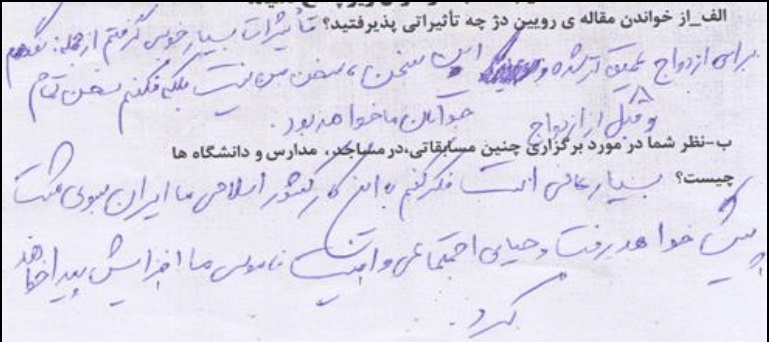 الف_از خواندن مقاله ی رویین دژ چه تأثیراتی پذیرفتید؟ تأثیرات بسیار خوبی گرفتم از جمله:
برای ازدواج عمیق تر شده و این سخن، سخن من نیست بلکه فکنم سخن تمام
و قبل از ازدواج جوانان ما خواهد بود.
ب-نظر شما در مورد برگزاری چنین مسابقاتی،در مساجد، مدارس و دانشگاه ها
چیست؟ بسیار عالی است فکر کنم با این کار کشور اسلامی ما ایران بسوی مثبت
پیش خواهد رفت و حیای اجتماعی و امنیت ناموس ما افزایش پیدا خواهد
کرد.